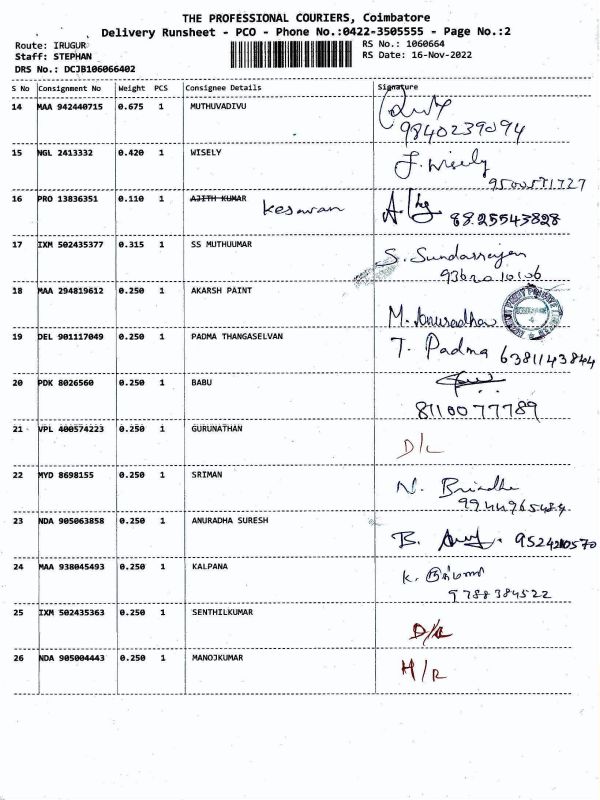 THE PROFESSIONAL COURIERS, Coimbatore
Delivery Runsheet - PCO - Phone No.:0422-3505555 - Page No.:2
Route: IRUGUR
RS No.: 1060664
Staff: STEPHAN
RS Date: 16-Nov-2022
DRS No.: DCJB106066402
S No Consignment No Weight PCS Consignee Details Signature
14 MAA 942440715 0.675 1 MUTHUVADIVU
9840239094
15 NGL 2413332 0.420 1 WISELY J. Wisely
9500571727
16 PRO 13836351 0.110 1 AJITH KUMAR Kesavan 8825543828
17 IXM 502435377 0.315 1 SS MUTHUUMAR S. Sundarrajan
18 MAA 294819612 0.250 1 AKARSH PAINT
M. Anuradhaa
19 DEL 901117049 0.250 1 PADMA THANGASELVAN T. Padma 6381143844
20 PDK 8026560 0.250 1 BABU
8110077789
21 VPL 400574223 0.250 1 GURUNATHAN D/L
22 MYD 8698155 0.250 1 SRIMAN N. Brindha
9944965484
23 NDA 905063858 0.250 1 ANURADHA SURESH B.
24 MAA 938045493 0.250 1 KALPANA K.
9788384522
25 IXM 502435363 0.250 1 SENTHILKUMAR
26 NDA 905004443 0.250 1 MANOJKUMAR H/R